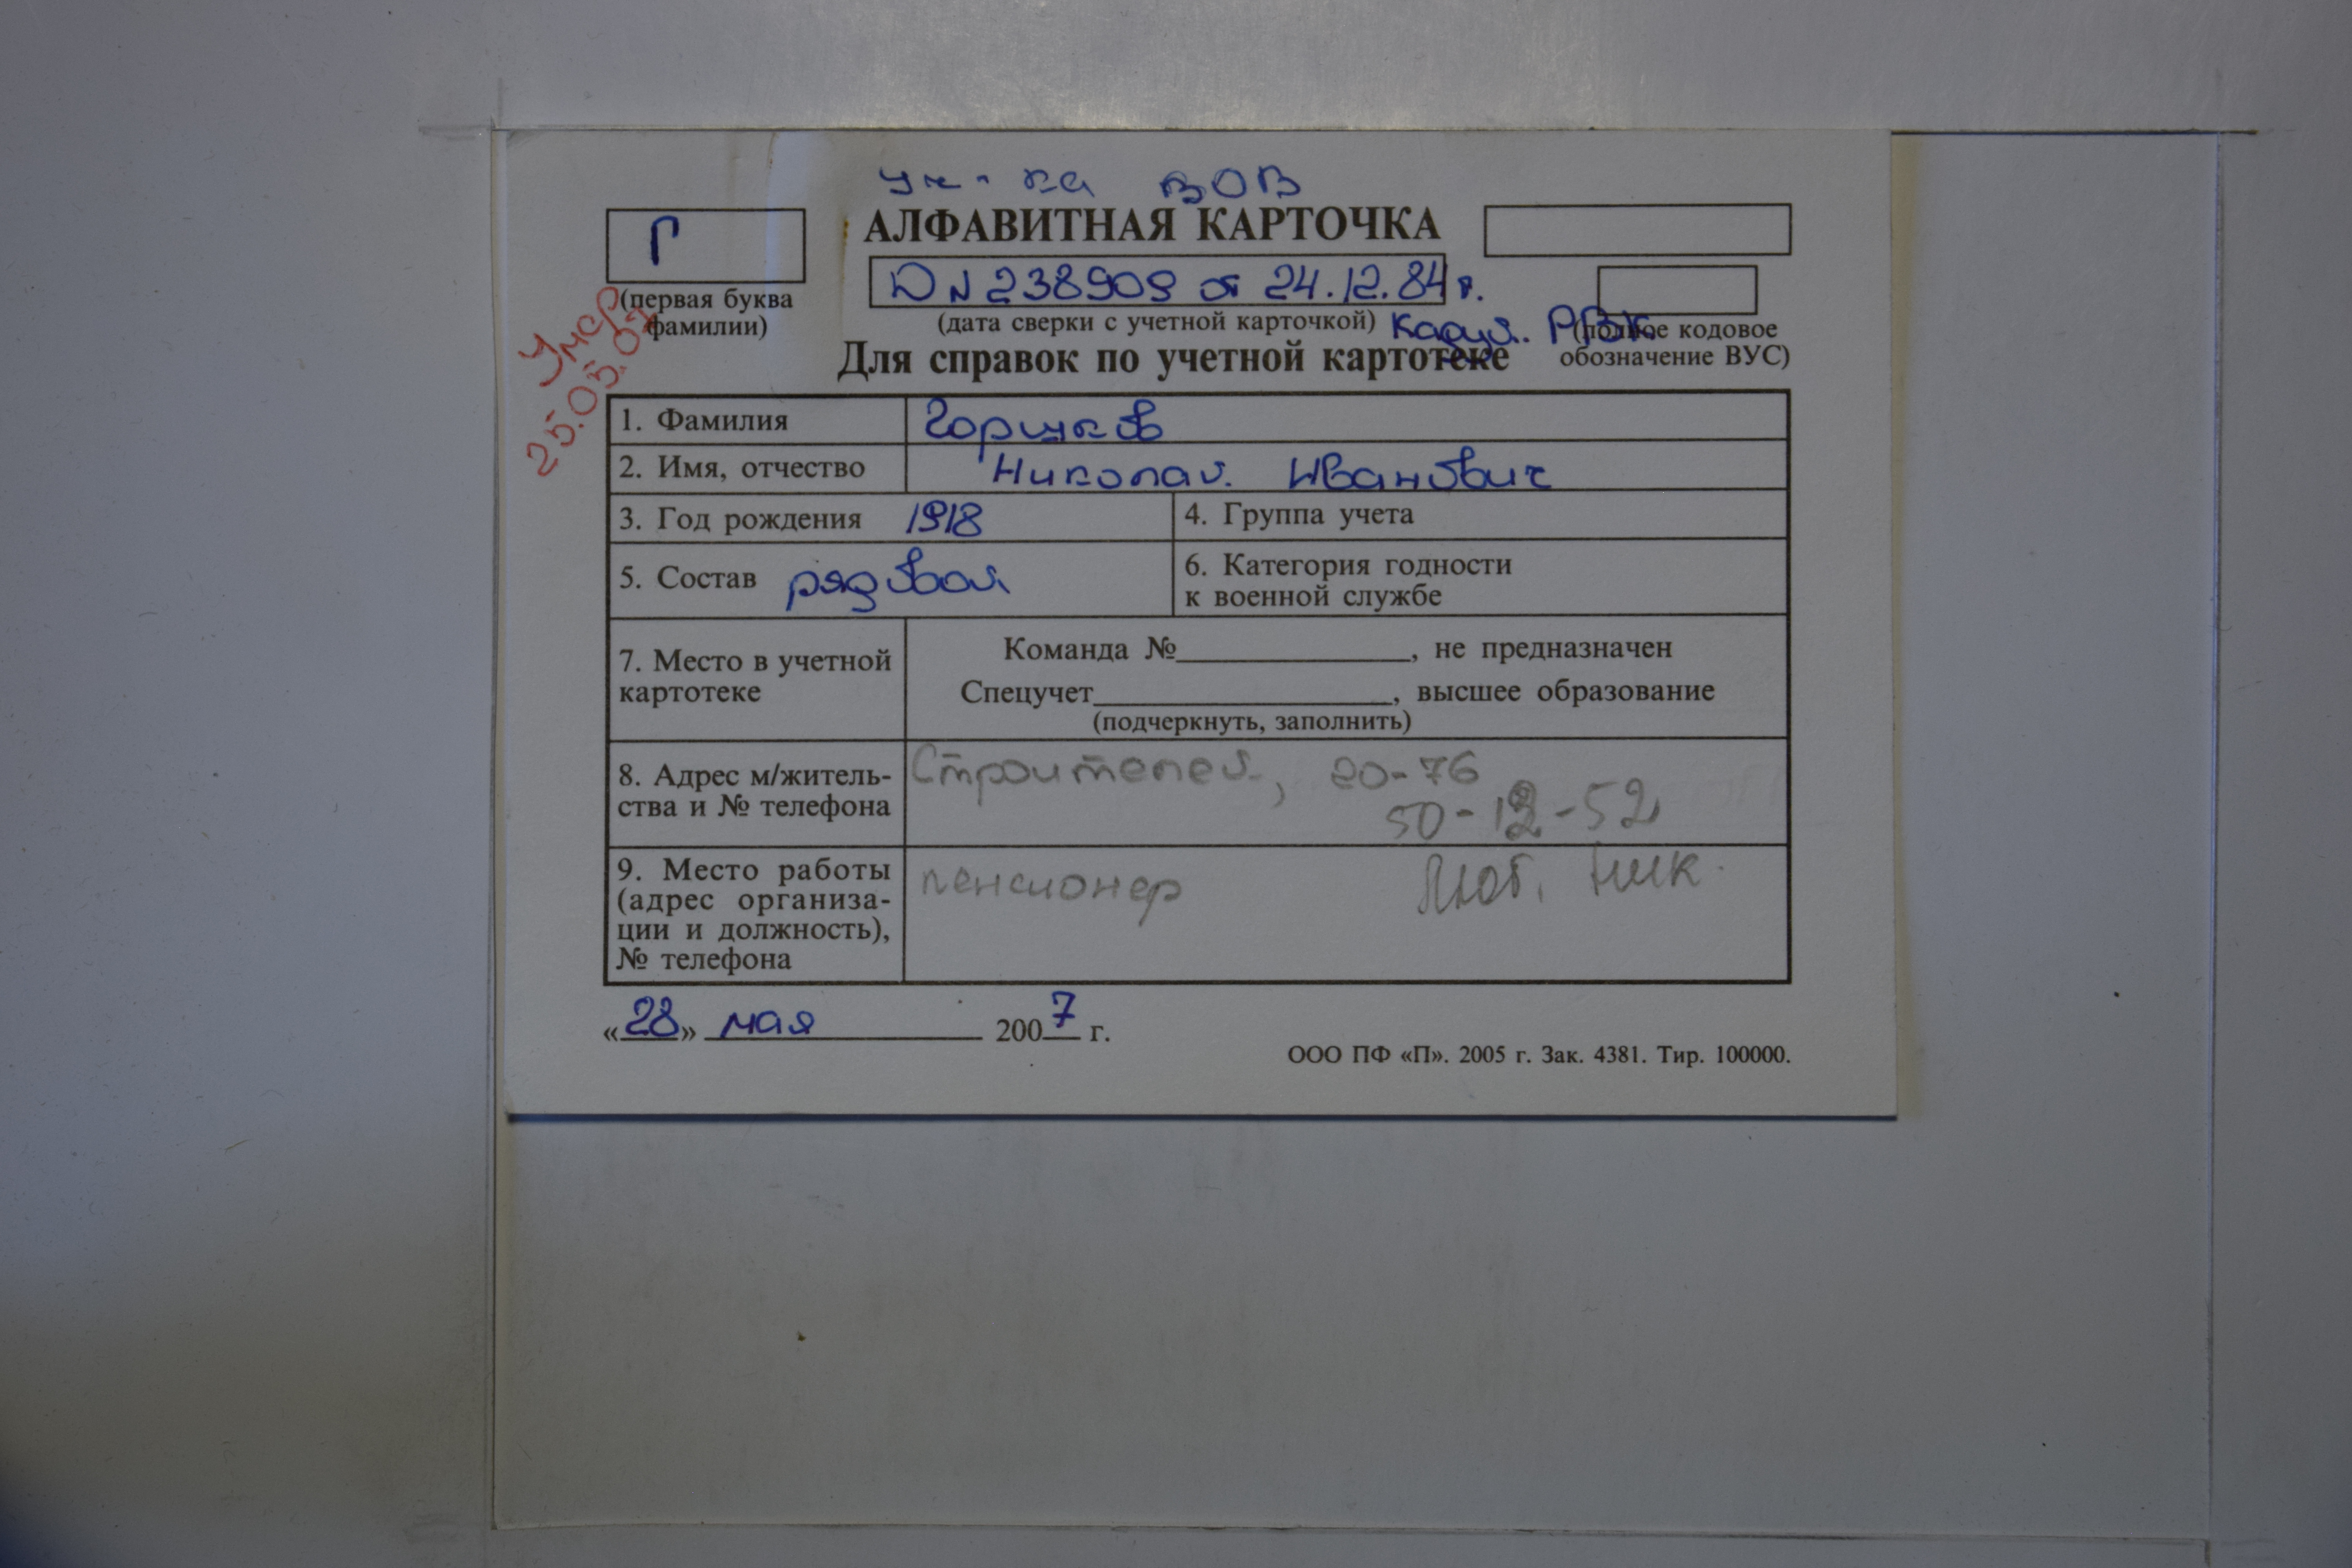 Уч-ка ВОВ
Г
АЛФАВИТНАЯ КАРТОЧКА
D N 238909 от 24.12.84 г.
(первая буква
фамилии)
(дата сверки с учетной карточкой)
РВК
(полное кодовое
обозначение ВУС)
Умер
25.05.07
Для справок по учетной картотеке
1. Фамилия Горшков
2. Имя, отчество Николай Иванович
3. Год рождения 1918
4. Группа учета
5. Состав рядовой
6. Категория годности
к военной службе
7. Место в учетной
картотеке
Команда №, не предназначен
Спецучет, высшее образование
(подчеркнуть, заполнить)
8. Адрес м/житель-
ства и № телефона
Строителей, 20-76
50-12-52
9. Место работы
(адрес организа-
ции и должность),
№ телефона
пенсионер Люб. Ник.
«28» мая 2007 г.
ООО ПФ «П». 2005 г. Зак. 4381. Тир. 100000.